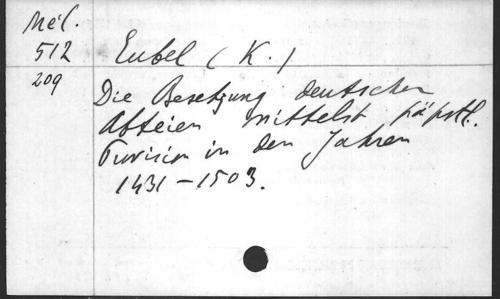 Mél.
512
209
Eubel (K.)
Die Besetzung deutscher
Abteien mittelst päpstl.
Provision in den Jahren
1431-1503.